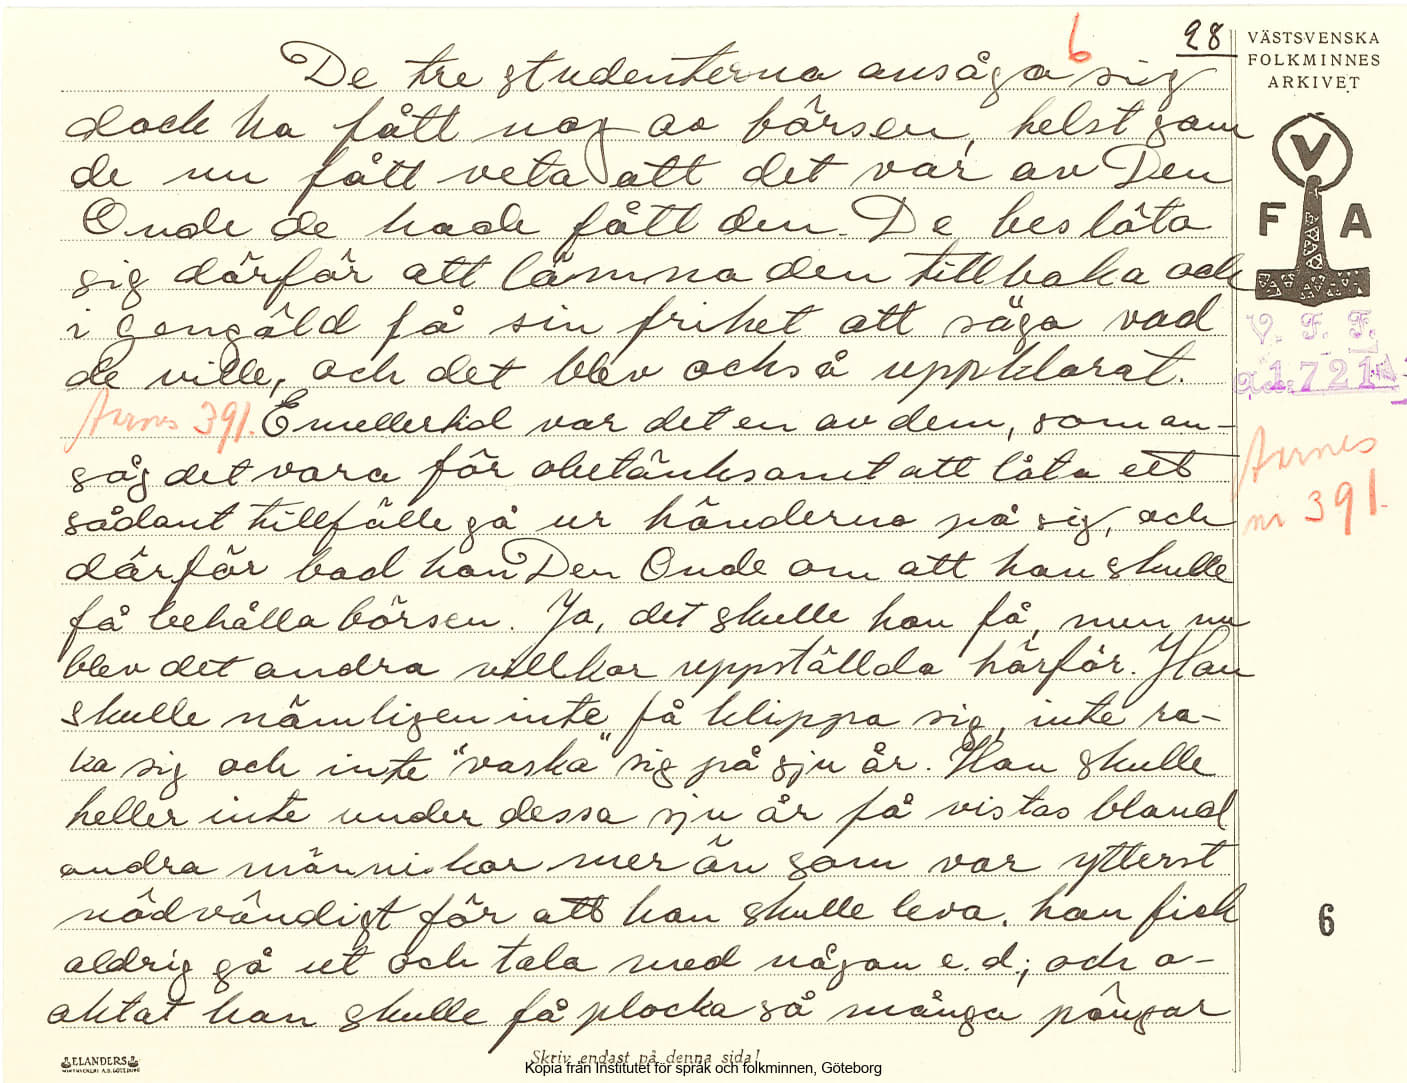 6
28
VÄSTSVENSKA
FOLKMINNES
ARKIVET
De tre studenterna ansåga sig
dock ha fått nog av börsen, helst som
de nu fått veta att det var av Den
Onde de hade fått den. De beslöto
sig därför att lämna den tillbaka och
i gengäld få sin frihet att säga vad
de ville, och det blev också uppklarat.
V
F A
V. F. F.
1721
Aarnes 391. Emellertid var det en av dem, som an-
såg det vara för obetänksamt att låta ett
sådant tillfälle gå ur händerna på sig, och
därför bad han Den Onde om att han skulle
få behålla börsen. Ja, det skulle han få, men nu
blev det andra villkor uppställda härför. Han
skulle nämligen inte få klippa sig, inte ra-
ka sig och inte "vaska" sig på sju år. Han skulle
heller inte under dessa sju år få vistas bland
andra människor mer än som var ytterst
nödvändigt för att han skulle leva, han fick
aldrig gå ut och tala med någon e.d.; och o-
aktat han skulle få plocka så många pängar
Aarnes
nr 391.
6
ELANDERS
Skriv endast på denna sida!
Kopia från Institutet för språk och folkminnen, Göteborg